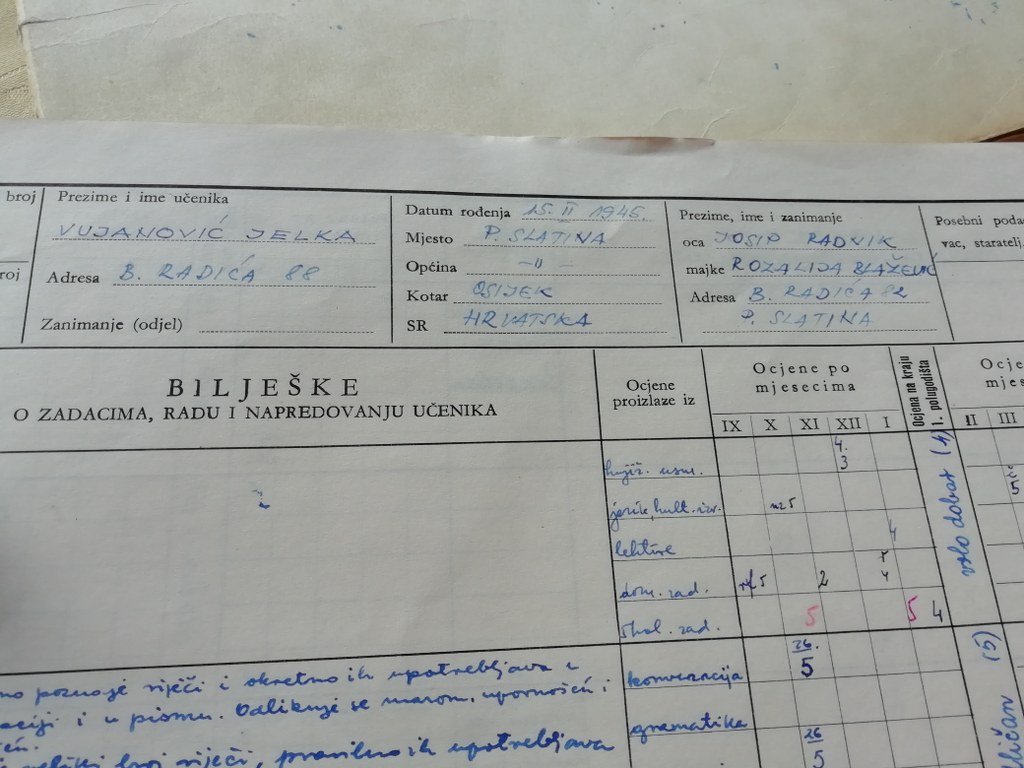 broj
Prezime i ime učenika
VUJANOVIĆ JELKA
Adresa B. RADIĆA 88
Zanimanje (odjel)
roj
Datum rođenja 15. II 1945.
Mjesto P. SLATINA
Općina -"-
Kotar OSIJEK
SR HRVATSKA
Prezime, ime i zanimanje
oca JOSIP RADVIK
majke ROZALIJA BLAŽEVIĆ
Adresa B. RADIĆA 82
P. SLATINA
Posebni poda
vac, staratelj,
BILJEŠKE
O ZADACIMA, RADU I NAPREDOVANJU UČENIKA
Ocjene
proizlaze iz
Ocjene po
mjesecima
IX X XI XII I
Ocjena na kraju
I. polugodišta
Ocje
mjes
II III
knjiž. usm.
4.
3
5
jezik, kult. izr.
5
lektire
4
dom. zad.
5 2 4
škol. zad.
5 5 4
vrlo dobar (4)
konverzacija
26.
5
gramatika
26
5
ličan (5)
no poznaje riječi i okretno ih upotrebljava u
aciji i u pismu. Odlikuje se marom, upornošću i
veliki broj riječi, pravilno ih upotrebljava